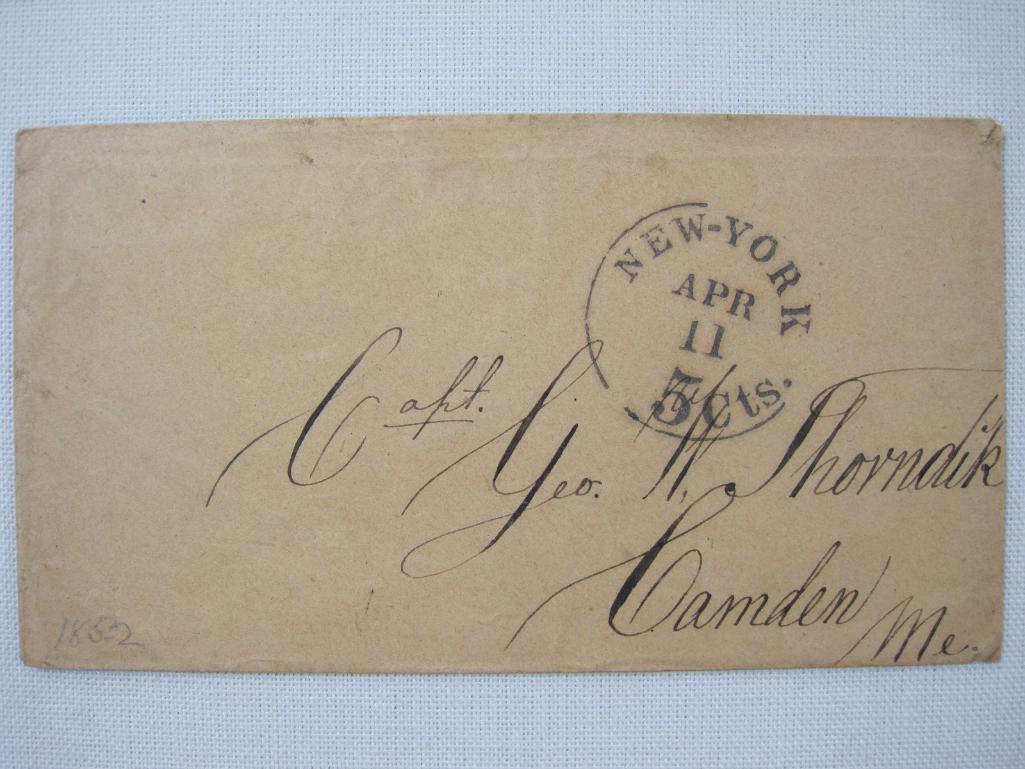 NEW-YORK
APR
11
5 Cts.
Capt. Geo. W. Thorndik
Camden
Me.
1852